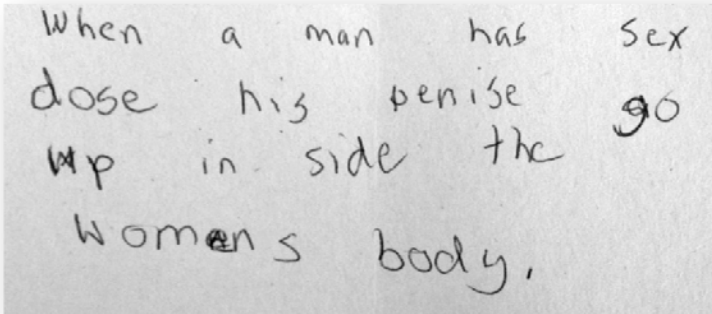 When a man has sex
dose his penise go
up in side the
womens body.